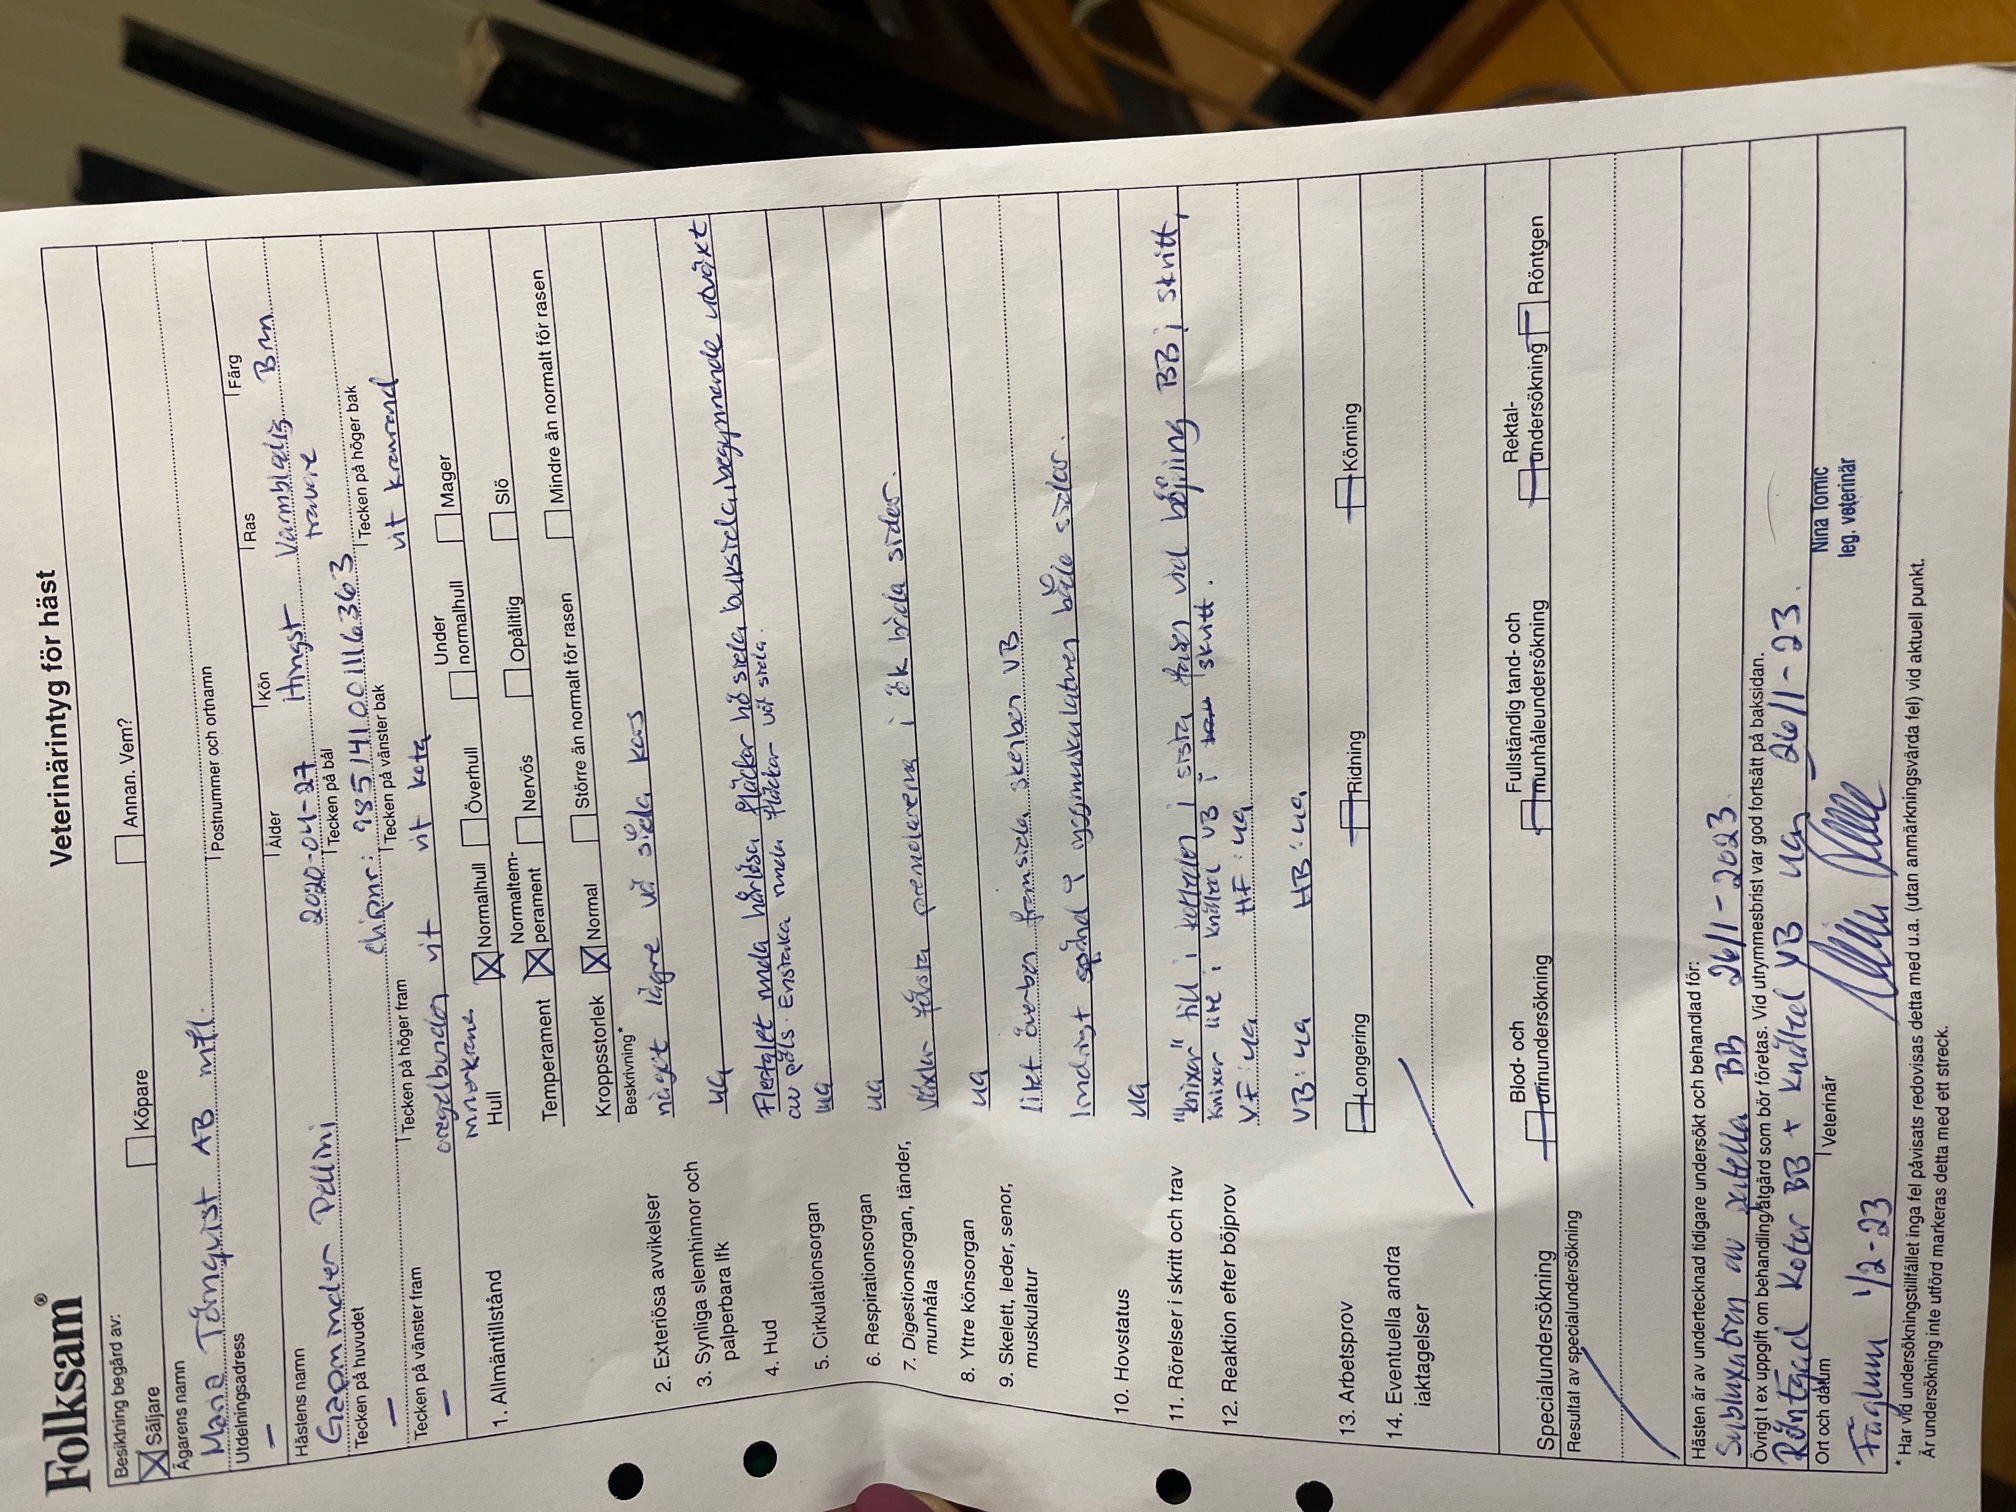 Folksam®
Veterinärintyg för häst
Besiktning begärd av:
Säljare Köpare Annan. Vem?
Ägarens namn
Maria Törnqvist AB mfl.
Utdelningsadress Postnummer och ortnamn
–
Hästens namn Ålder Kön Ras Färg
2020-04-27 Hingst Varmblodig travare Brun
Tecken på huvudet Tecken på bål
– chipnr: 985141001116363
Tecken på vänster fram Tecken på höger fram Tecken på vänster bak Tecken på höger bak
– oregelbunden vit vit kota vit kronrand
1. Allmäntillstånd
Hull Normalhull Överhull Under normalhull Mager
Temperament Normaltemperament Nervös Opålitlig Slö
Kroppsstorlek Normal Större än normalt för rasen Mindre än normalt för rasen
Beskrivning*
2. Exteriösa avvikelser något lägre vä sida kors
3. Synliga slemhinnor och palperbara lfk ua
4. Hud Flertalet små hårlösa fläckar hö sida buksida, begynnande utväxt
av päls. Enstaka små fläckar vä sida.
5. Cirkulationsorgan ua
6. Respirationsorgan ua
7. Digestionsorgan, tänder, munhåla första premolarerna i ök båda sidor.
8. Yttre könsorgan ua
9. Skelett, leder, senor, muskulatur litet överben framsida skenben VB
Lindrigt spänd i ryggmuskulaturen båda sidor.
10. Hovstatus ua
11. Rörelser i skritt och trav "knixar" till i knäled i sista fasen vid böjning BB i skritt,
knixar lite i knäled VB i skritt.
12. Reaktion efter böjprov VF: ua HF: ua
VB: ua HB: ua
13. Arbetsprov Longering Ridning Körning
14. Eventuella andra iaktagelser
Specialundersökning Blod- och urinundersökning Fullständig tand- och munhåleundersökning Rektal-undersökning Röntgen
Resultat av specialundersökning
Hästen är av undertecknad tidigare undersökt och behandlad för:
Subluxation av patella BB 26/1-2023
Övrigt t ex uppgift om behandling/åtgärd som bör företas. Vid utrymmesbrist var god fortsätt på baksidan.
Röntgad kotor BB + knäled VB uan 26/1-23.
Ort och datum Veterinär
Färglum 1/2-23
Nina Tomic
leg. veterinär
* Har vid undersökningstillfället inga fel påvisats redovisas detta med u.a. (utan anmärkningsvärda fel) vid aktuell punkt.
Är undersökning inte utförd markeras detta med ett streck.